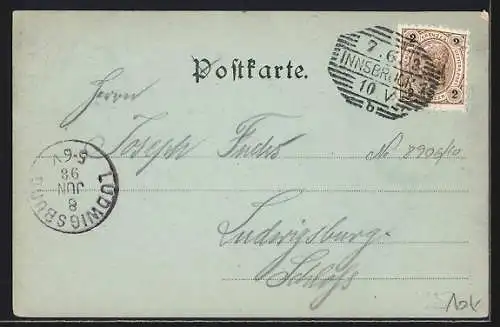 Postkarte.
2 2
2 2
7 6 98
INNSBRUCK 1
10 V
6
Herrn
Joseph Fuchs
No 8906/10
5-6 V
98
JUN
8
LUDWIGSBURG
Ludwigsburg.
Schloss